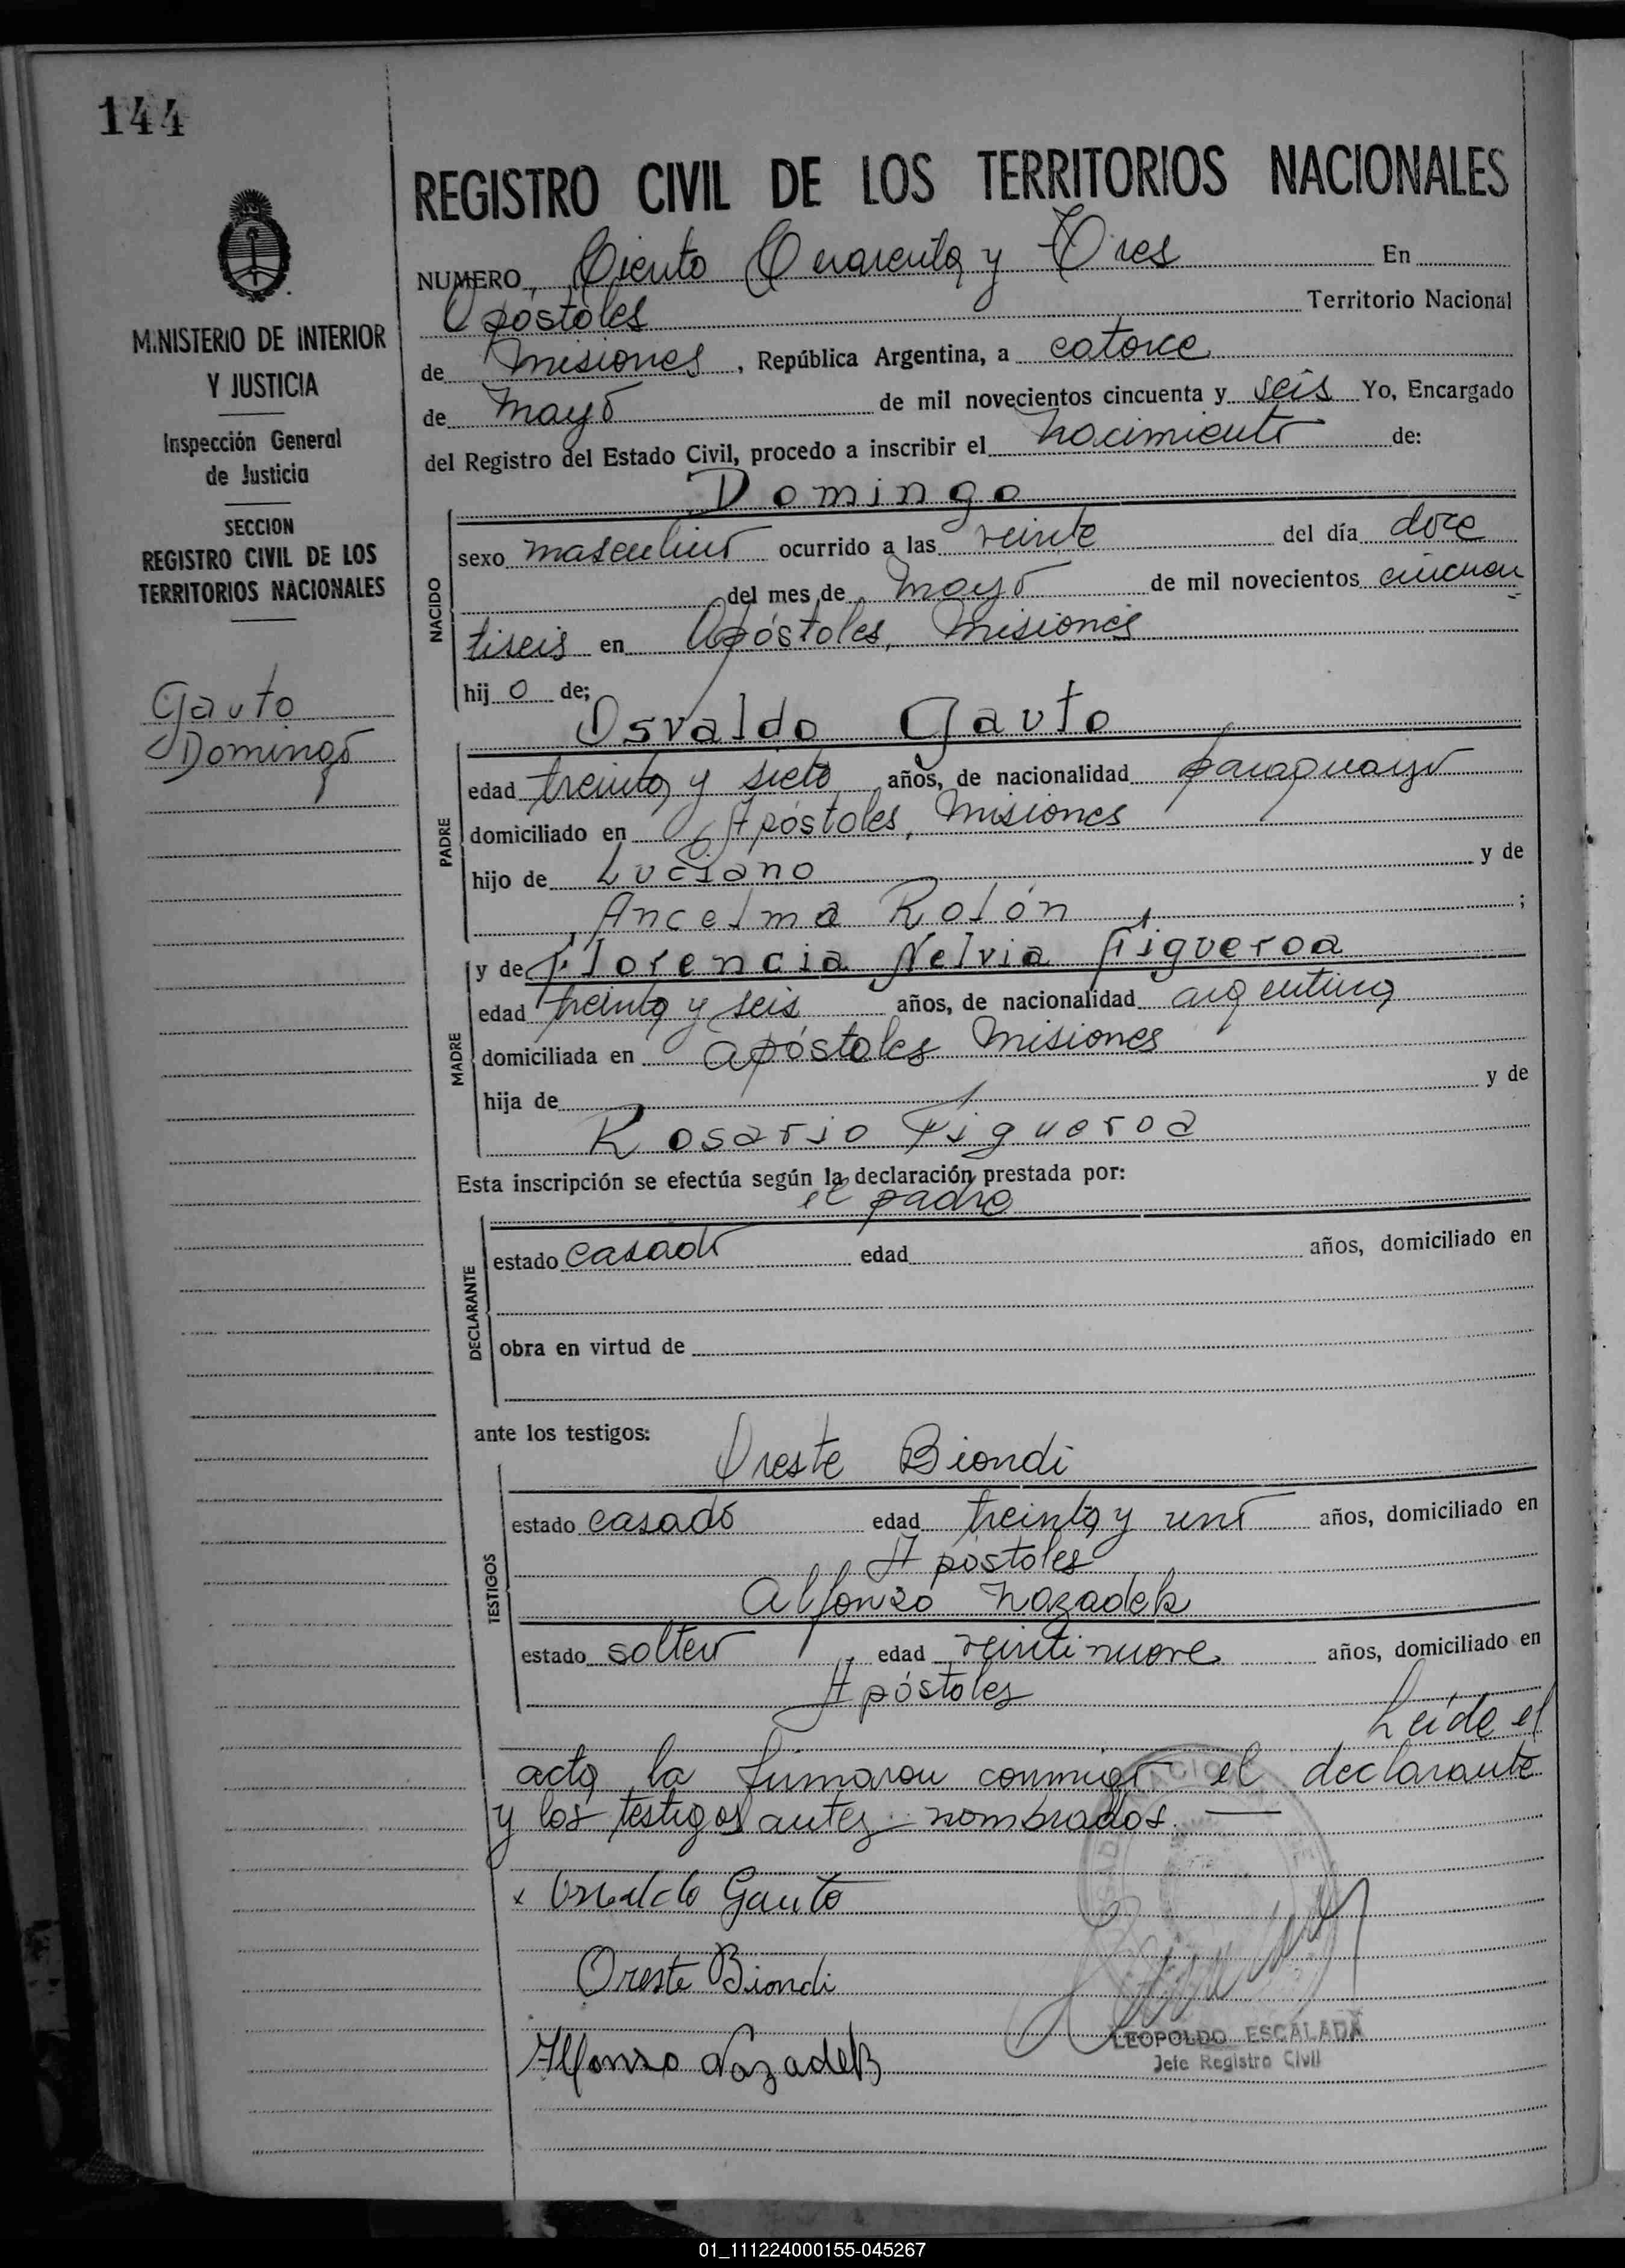 144
REGISTRO CIVIL DE LOS TERRITORIOS NACIONALES
NUMERO, Ciento Cuarenta y Tres En
Apostoles Territorio Nacional
de Misiones, República Argentina, a catorce
de Mayo de mil novecientos cincuenta y seis Yo, Encargado
del Registro del Estado Civil, procedo a inscribir el nacimiento de:
M.NISTERIO DE INTERIOR
Y JUSTICIA
Inspección General
de Justicia
SECCION
REGISTRO CIVIL DE LOS
TERRITORIOS NACIONALES
Gauto
Domingo
NACIDO
Domingo
sexo masculino ocurrido a las veinte del día doce
del mes de Mayo de mil novecientos cincuen
tiseis en Apóstoles, Misiones
hijo de;
PADRE
Osvaldo Gauto
edad treinta y siete años, de nacionalidad paraguayo
domiciliado en Apóstoles, Misiones
hijo de Luciano y de
Ancelma Rolón ;
MADRE
y de Florencia Nelvia Figueroa
edad treinta y seis años, de nacionalidad argentina
domiciliada en Apóstoles Misiones
hija de y de
Rosario Figueroa
Esta inscripción se efectúa según la declaración prestada por:
DECLARANTE
el padre
estado casado edad años, domiciliado en
obra en virtud de
ante los testigos:
TESTIGOS
Oreste Biondi
estado casado edad treinta y uno años, domiciliado en
Apóstoles
Alfonso Nazadek
estado soltero, edad veintinueve años, domiciliado en
Apóstoles
Leída el
acta, la firmaron conmigo el declarante
y los testigos antes nombrados.
x Osvaldo Gauto
Oreste Biondi
Alfonso Nazadek
LEOPOLDO ESCALADA
Jefe Registro Civil
01_111224000155-045267